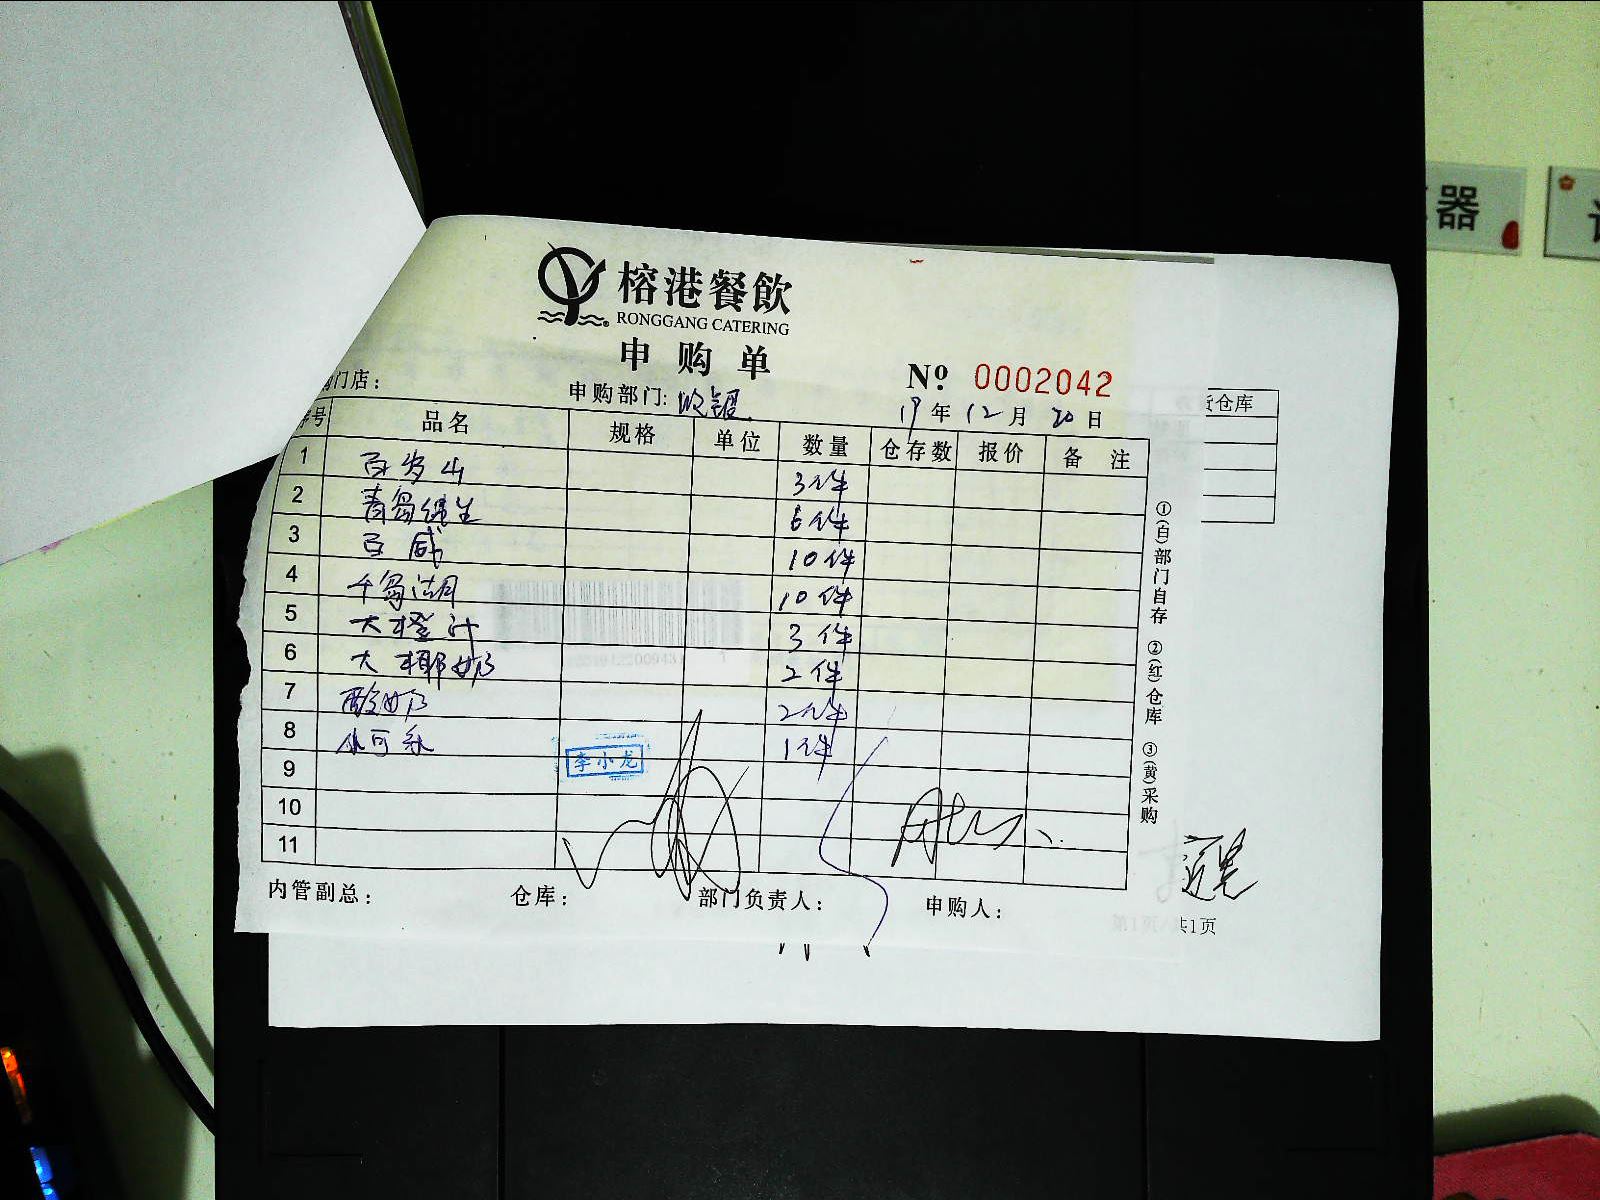 器
榕港餐飲
RONGGANG CATERING
申购单
Nº 0002042
门店：
申购部门: 收银
19年12月20日
货仓库
序号 品名 规格 单位 数量 仓存数 报价 备注
1 百岁山 3件
2 青岛纯生 6件
3 百威 10件
4 千岛湖 10件
5 大橙汁 3件
6 大椰奶 2件
7 酸奶 2件
8 小可乐 1件
9
10
11
李小龙
①(白)部门自存 ②(红)仓库 ③(黄)采购
内管副总： 仓库： 部门负责人： 申购人：
共1页